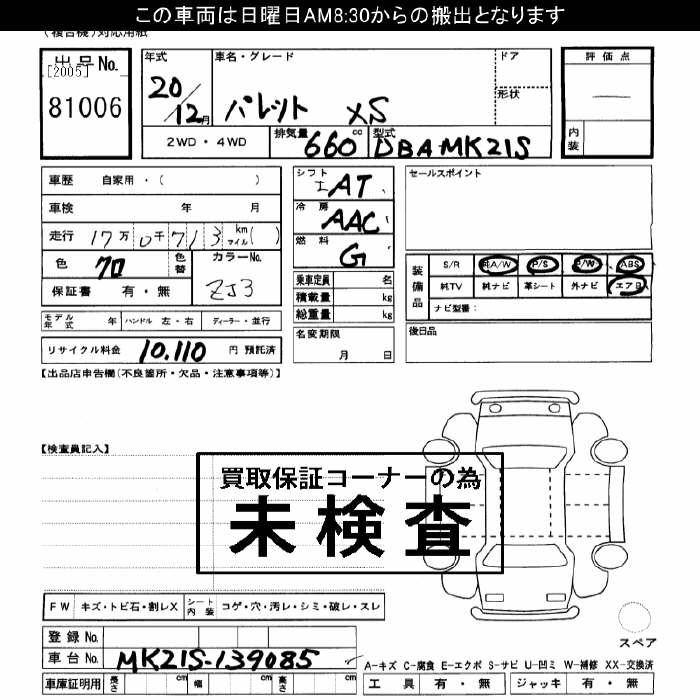 この車両は日曜日AM8:30からの搬出となります
(複合機)対応用紙
出品No. [2005]
81006
年式 20/12月
車名・グレード パレット XS
ドア
形状
評価点
内装
2WD・4WD
排気量 660cc
型式 DBAMK21S
車歴 自家用・( )
車検 年 月
走行 17万0千713 km マイル( )
色 クロ
色替
カラーNo. ZJ3
保証書 有・無
モデル年式 年
ハンドル 左・右
ディーラー・並行
リサイクル料金 10,110 円 預託済
シフト IAT
冷房 AAC
燃料 G
乗車定員 名
積載量 kg
総重量 kg
名変期限
月 日
セールスポイント
装備品
S/R 純A/W P/S P/W ABS
純TV 純ナビ 革シート 外ナビ エアB
ナビ型番:
後日品
【出品店申告欄(不良箇所・欠品・注意事項等)】
【検査員記入】
買取保証コーナーの為
未検査
FW キズ・トビ石・割レX
シート内装 コゲ・穴・汚レ・シミ・破レ・スレ
登録No.
車台No. MK21S-139085
車庫証明用 長さ cm 幅 cm 高さ cm
スペア
A-キズ C-腐食 E-エクボ S-サビ U-凹ミ W-補修 XX-交換済
工具 有・無 ジャッキ 有・無